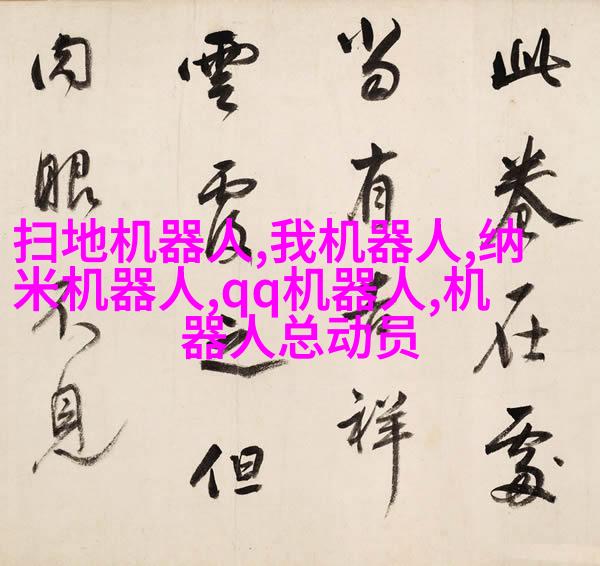 此卷在處
當有吉祥
雲覆之但
肉眼不見
扫地机器人,我机器人,纳
米机器人,qq机器人,机
器人总动员